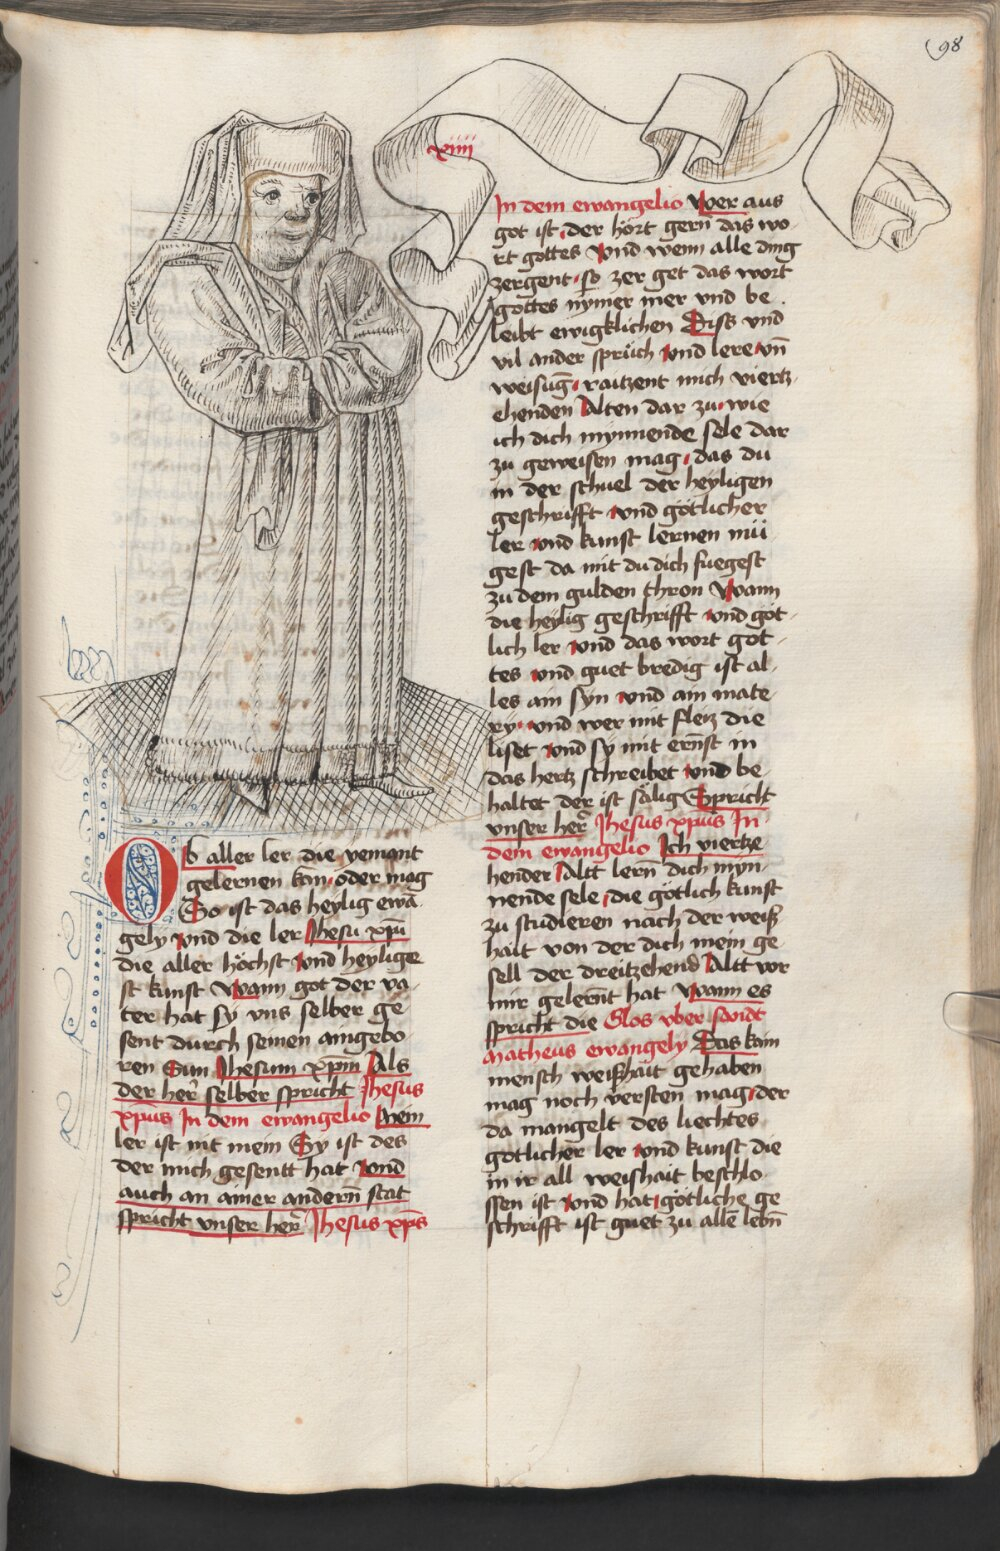 98
xiiii
Ob aller ler die yemant
gelernen kan oder mag
So ist das heylig ewa
gely vnd die ler Jhesu xpū
die aller höchst vnd heylige
st kunst Wann got der va
ter hat sy vns selber ge
sent durch seinen aingebo
ren Sun Jhesum xpm̄ Als
der her selber spricht Jhesus
xpus In dem ewangelio Mein
ler ist nit mein Sy ist des
der mich gesentt hat vnd
auch an ainer andern̄ stat
spricht vnser her Jhesus xp̄s
In dem ewangelio Wer aus
got ist der hört gern das wo
rt gottes vnd wenn alle ding
zergent so zer get das wort
gottes nymer mer vnd be
leibt ewigklichen Diss vnd
vil ander sprüch vnd lere vn̄
weisuḡ raitzent mich viertz
ehenden Alten dar zu wie
ich dich mynnende sele dar
zu geweisen mag das du
in der schuel der heyligen
geschrifft vnd götlicher
ler vnd kunst lernen mü
gest da mit du dich fuegest
zu dem gulden thron Wann
die heylig geschrifft vnd got
lich ler vnd das wort got
tes vnd guet bredig ist al
les ain syn vnd ain mate
ry vnd wer mit fleiz die
liset vnd sy mit ernst in
das hertz schreibet vnd be
haltet der ist sälig Spricht
vnser her Jhesus xpus In
dem ewangelio Ich viertze
hender Altt lern̄ dich myn
nende sele die götlich kunst
zu studieren nach der weiß
hait von der dich mein ge
sell der dreitzehend Altt vor
mir gelernt hat Wann es
spricht die Glos vber sandt
Matheus ewangely Das kain
mensch weißhait gehaben
mag noch versten mag der
da mangelt des liechtes
gotlicher ler vnd kunst die
in ir all weishait beschlo
ssen ist vnd hat götliche ge
schrifft ist guet zu alle lebn̄